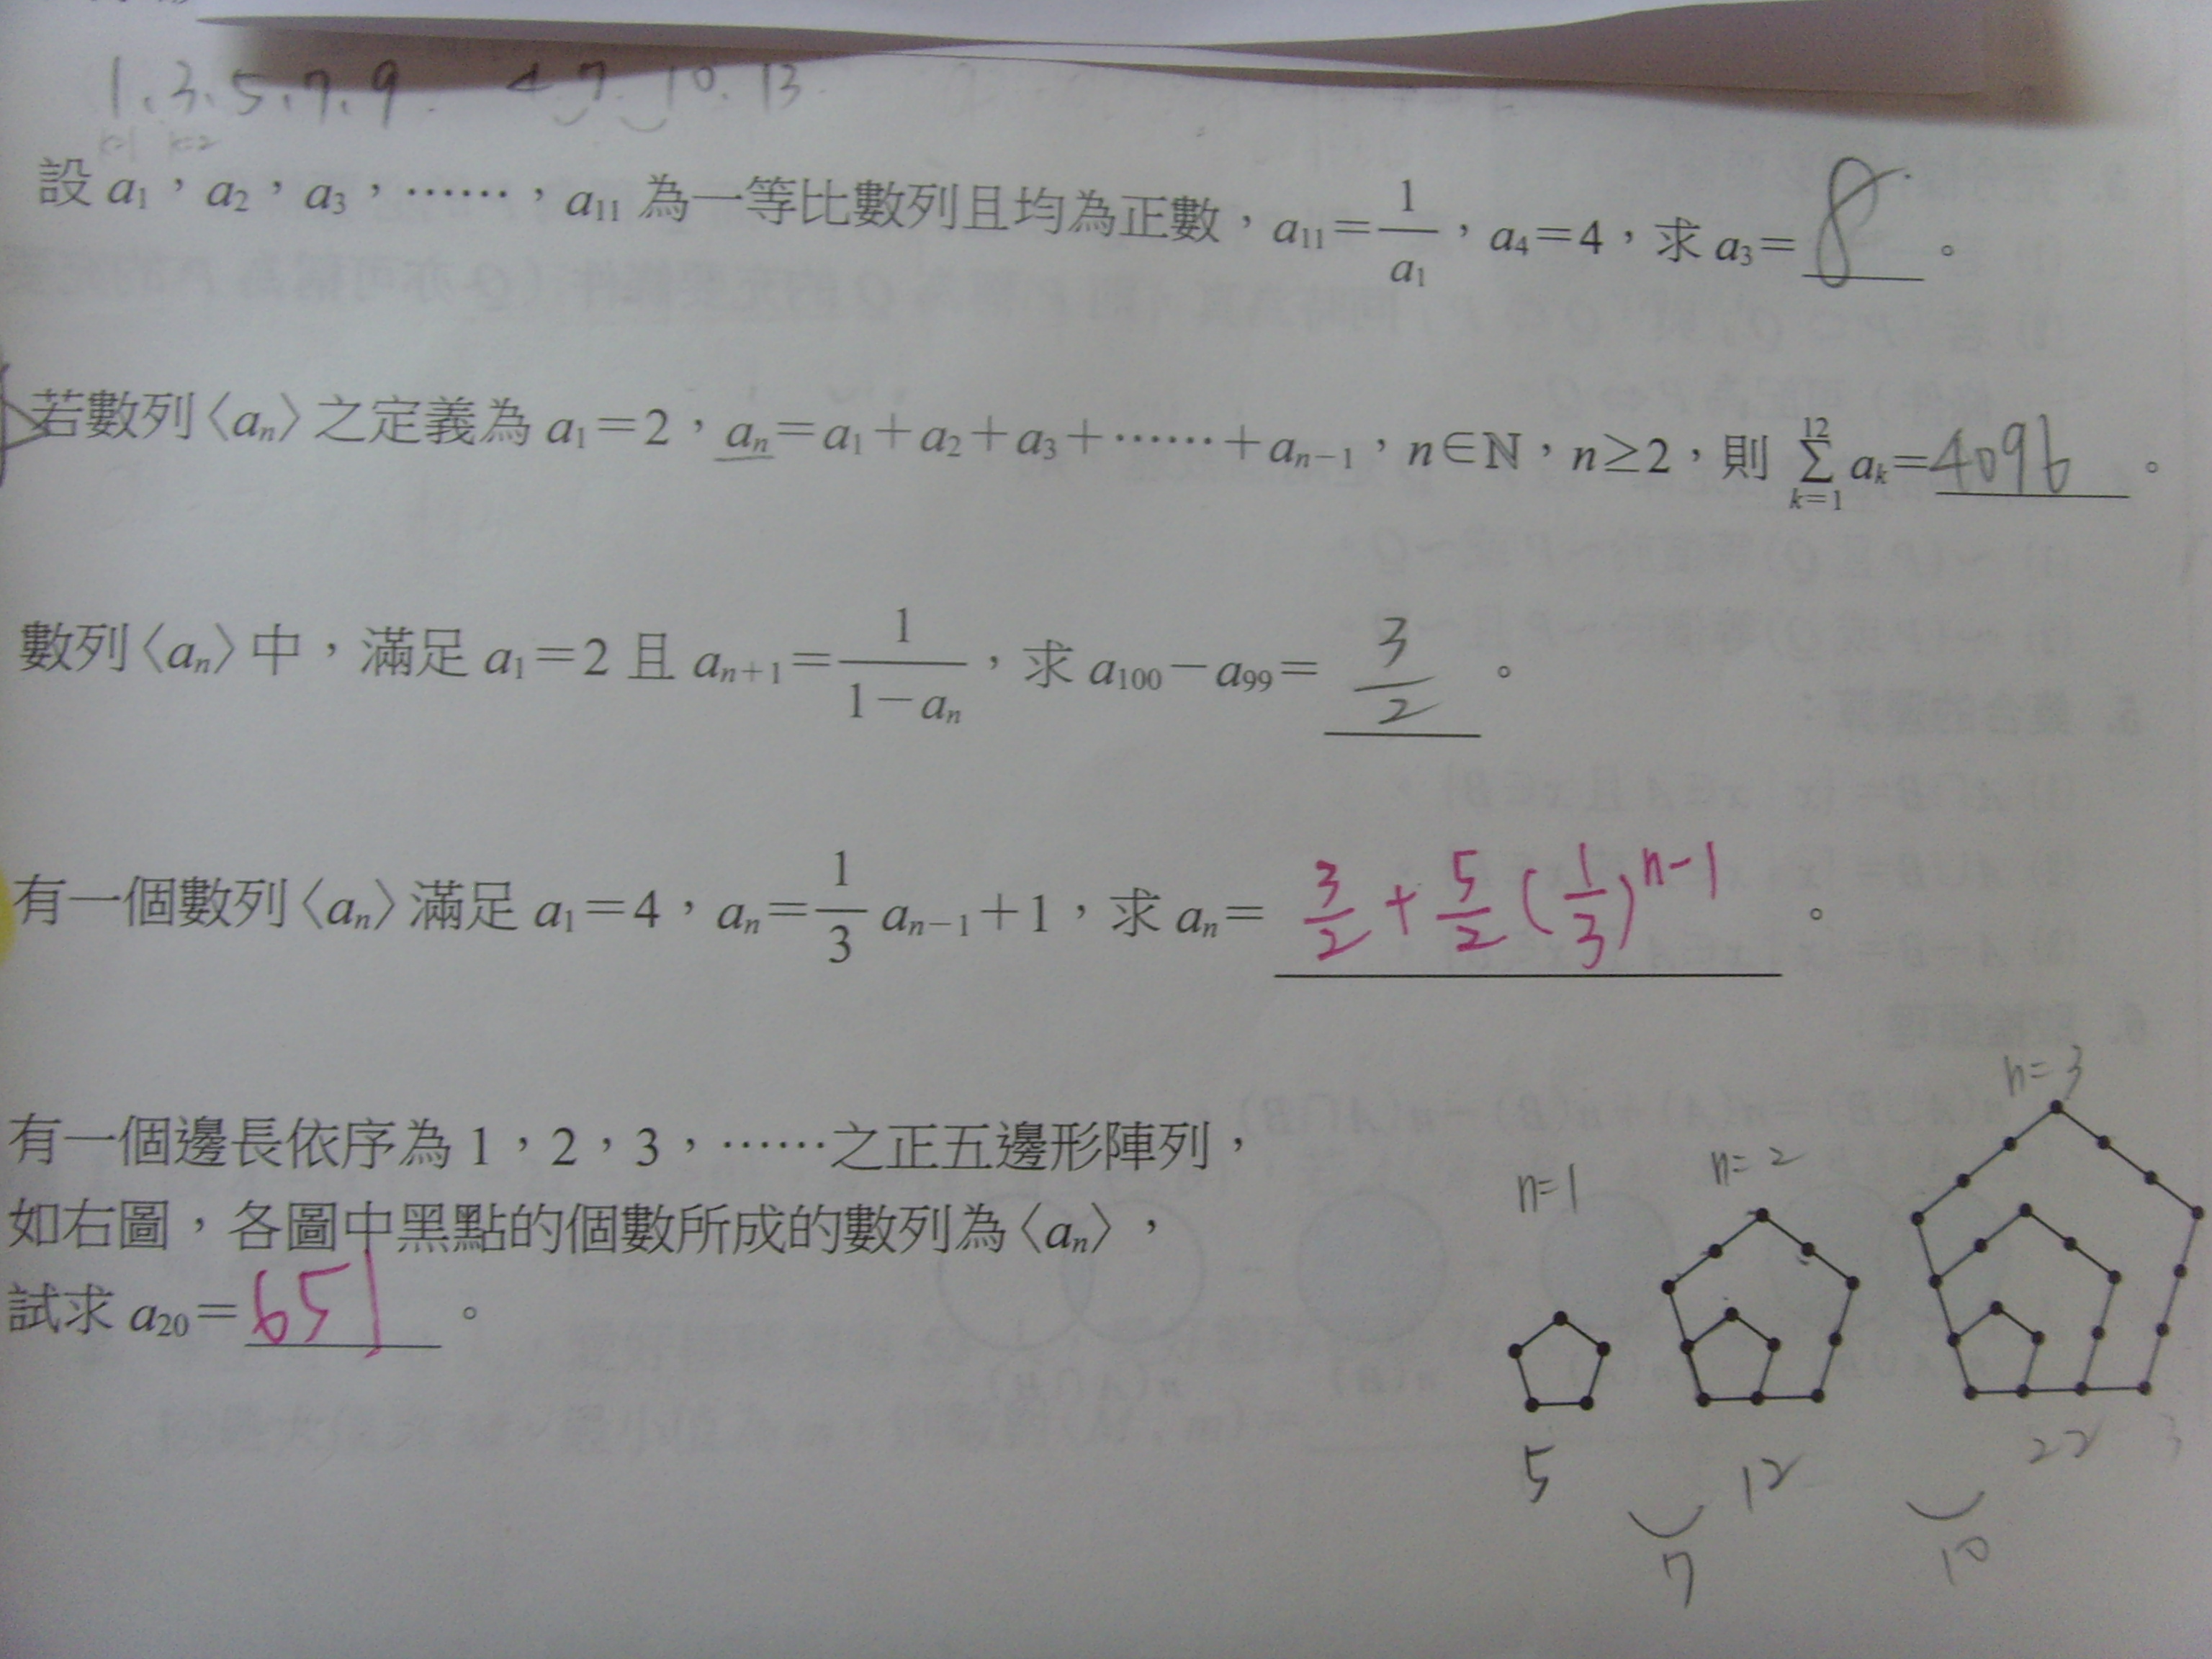 1、3、5、7、9. 4 7. 10. 13.
k=1 k=2
設 a₁，a₂，a₃，……，a₁₁ 為一等比數列且均為正數，a₁₁=1/a₁，a₄=4，求 a₃=8。
若數列〈aₙ〉之定義為 a₁=2，aₙ=a₁+a₂+a₃+……+aₙ₋₁，n∈ℕ，n≥2，則 Σ(k=1 to 12) aₖ=4096。
數列〈aₙ〉中，滿足 a₁=2 且 aₙ₊₁=1/(1-aₙ)，求 a₁₀₀-a₉₉=3/2。
有一個數列〈aₙ〉滿足 a₁=4，aₙ=1/3 aₙ₋₁+1，求 aₙ=3/2+5/2(1/3)ⁿ⁻¹。
有一個邊長依序為 1，2，3，……之正五邊形陣列，
如右圖，各圖中黑點的個數所成的數列為〈aₙ〉，
試求 a₂₀=651。
n=1 n=2 n=3
5 12 22
7 10